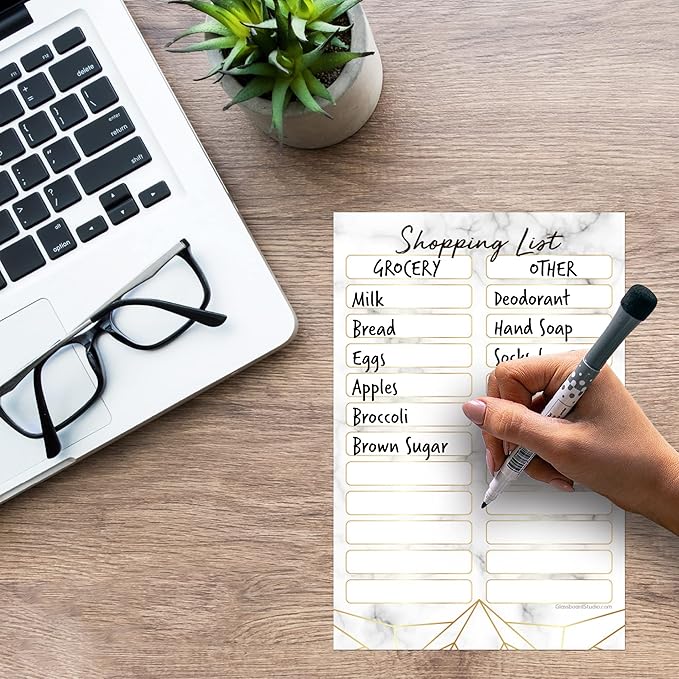 Shopping List
GROCERY
Milk
Bread
Eggs
Apples
Broccoli
Brown Sugar
OTHER
Deodorant
Hand Soap
Socks
GlassboardStudio.com
delete
enter
return
shift
option